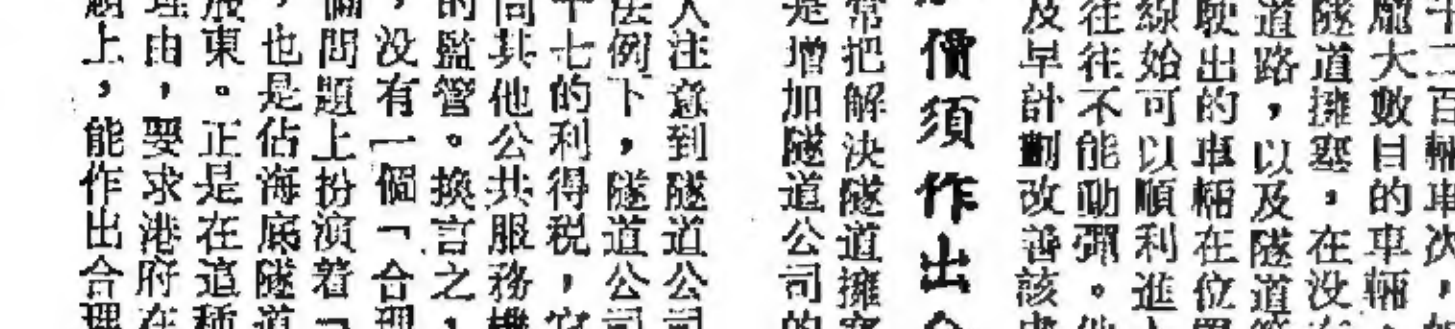 十二百輛車次，
龐大數目的車輛
隧道擁塞，在没
道路，以及隧道
駛出的車輛在位
線始可以順利進
往往不能動彈。
及早計劃改善該
價須作出
常把解決隧道擁
是增加隧道公司的
人注意到隧道公司
法例下，隧道公司
十七的利得税，
同其他公共服務機
的監管。換言之，
，没有一個「合理
個問題上扮演着「
，也是佔海底隧道
股東。正是在這種
理由，要求港府在
題上，能作出合理